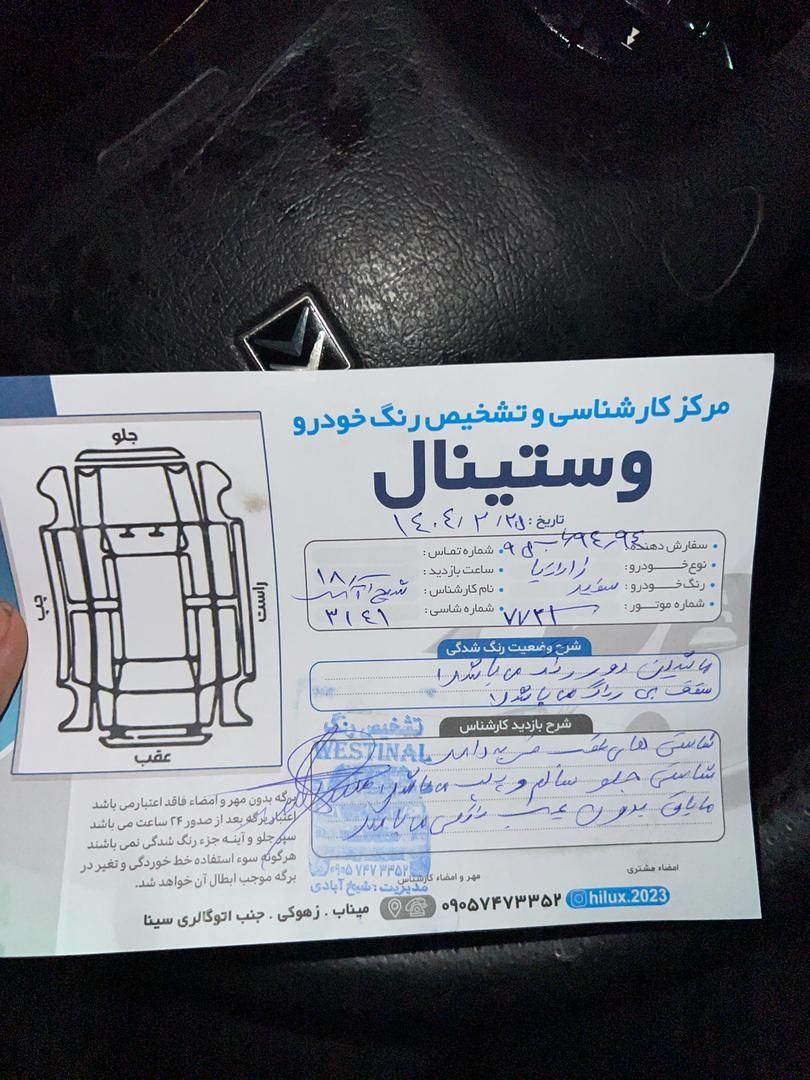 مرکز کارشناسی و تشخیص رنگ خودرو
وستینال
تاریخ: ۱۴۰۴/۳/۲۵
سفارش دهنده:
شماره تماس:
نوع خودرو:
ساعت بازدید: ۱۸
رنگ خودرو: سفید
نام کارشناس:
شماره موتور: ۷۷۳۱
شماره شاسی: ۳۱۴۱
شرح وضعیت رنگ شدگی
ماشین دور رنگ می باشد
سقف بی رنگ می باشد
شرح بازدید کارشناس
شاستی های عقب ضربه دارد
شاستی جلو سالم و پلمپ می باشد
بدون عیب
تشخیص رنگ
WESTINAL
۰۹۰۵ ۷۴۷ ۳۳۵۲
مدیریت: شیخ آبادی
مهر و امضاء کارشناس
امضاء مشتری
جلو
چپ
راست
عقب
برگه بدون مهر و امضاء فاقد اعتبار می باشد
اعتبار برگه بعد از صدور ۲۴ ساعت می باشد
سپر جلو و آینه جزء رنگ شدگی نمی باشند
هرگونه سوء استفاده خط خوردگی و تغیر در
برگه موجب ابطال آن خواهد شد.
hilux.2023
۰۹۰۵۷۴۷۳۳۵۲
میناب . زهوکی . جنب اتوگالری سینا